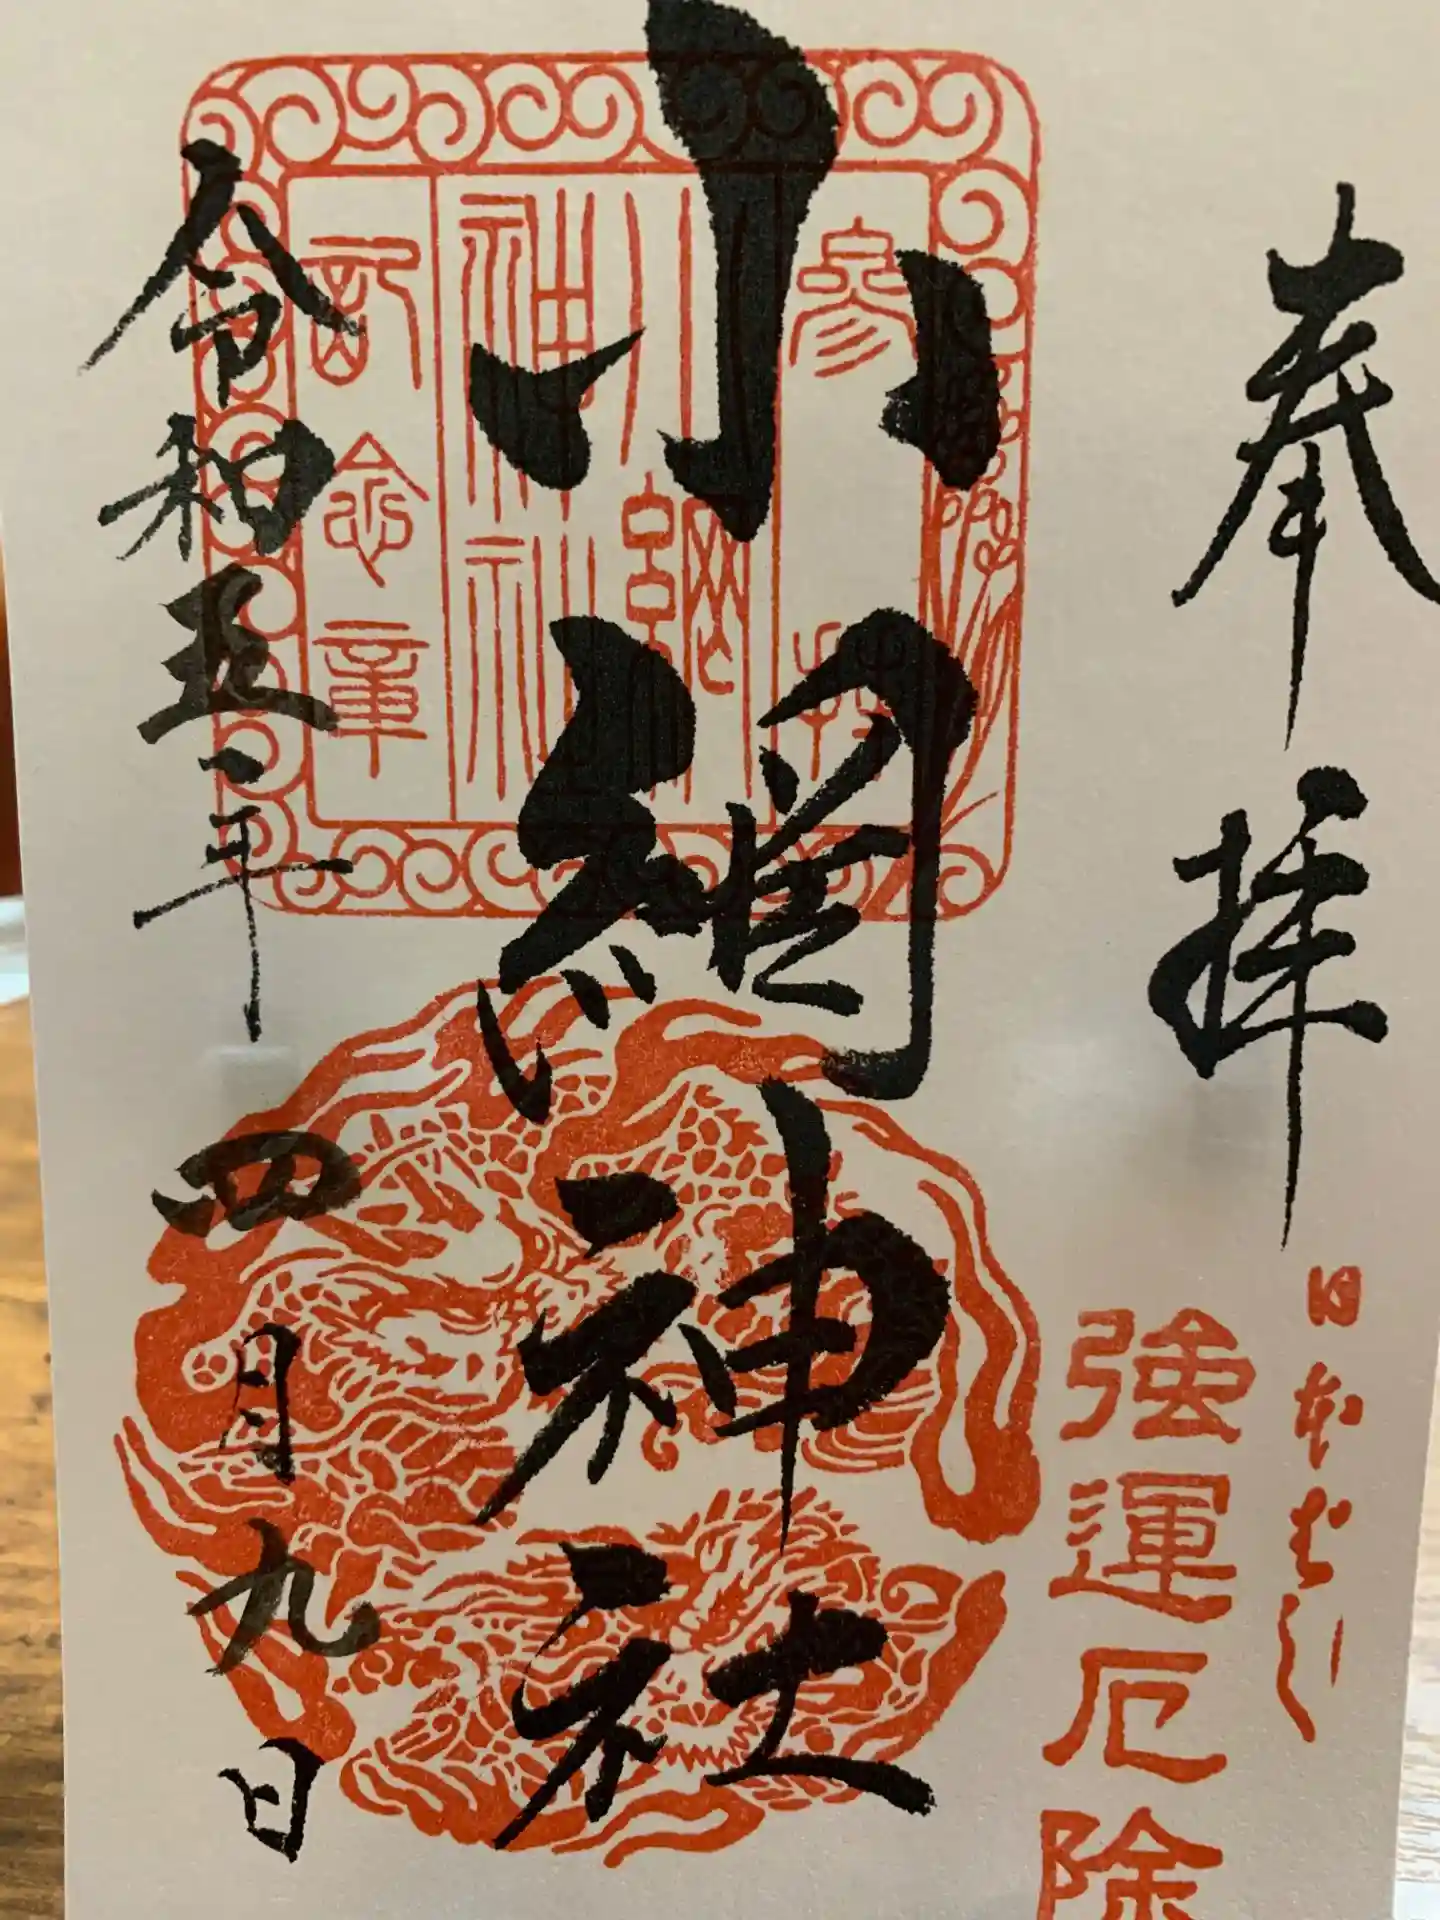 奉拝
日本ばし
強運厄除
小網神社
参拝
小網神社
記念章
令和五年四月九日